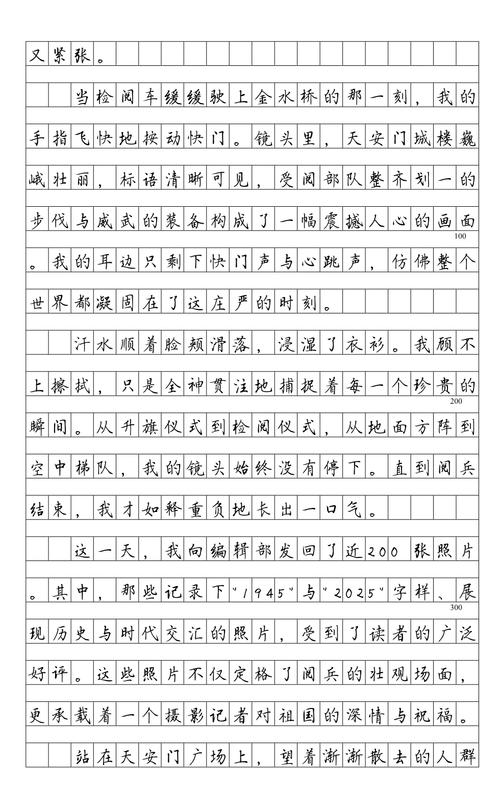 又紧张。
当检阅车缓缓驶上金水桥的那一刻，我的
手指飞快地按动快门。镜头里，天安门城楼巍
峨壮丽，标语清晰可见，受阅部队整齐划一的
步伐与威武的装备构成了一幅震撼人心的画面
100
。我的耳边只剩下快门声与心跳声，仿佛整个
世界都凝固在了这庄严的时刻。
汗水顺着脸颊滑落，浸湿了衣衫。我顾不
上擦拭，只是全神贯注地捕捉着每一个珍贵的
200
瞬间。从升旗仪式到检阅仪式，从地面方阵到
空中梯队，我的镜头始终没有停下。直到阅兵
结束，我才如释重负地长出一口气。
这一天，我向编辑部发回了近200 张照片
。其中，那些记录下"1945"与"2025"字样、展
300
现历史与时代交汇的照片，受到了读者的广泛
好评。这些照片不仅定格了阅兵的壮观场面，
更承载着一个摄影记者对祖国的深情与祝福。
站在天安门广场上，望着渐渐散去的人群